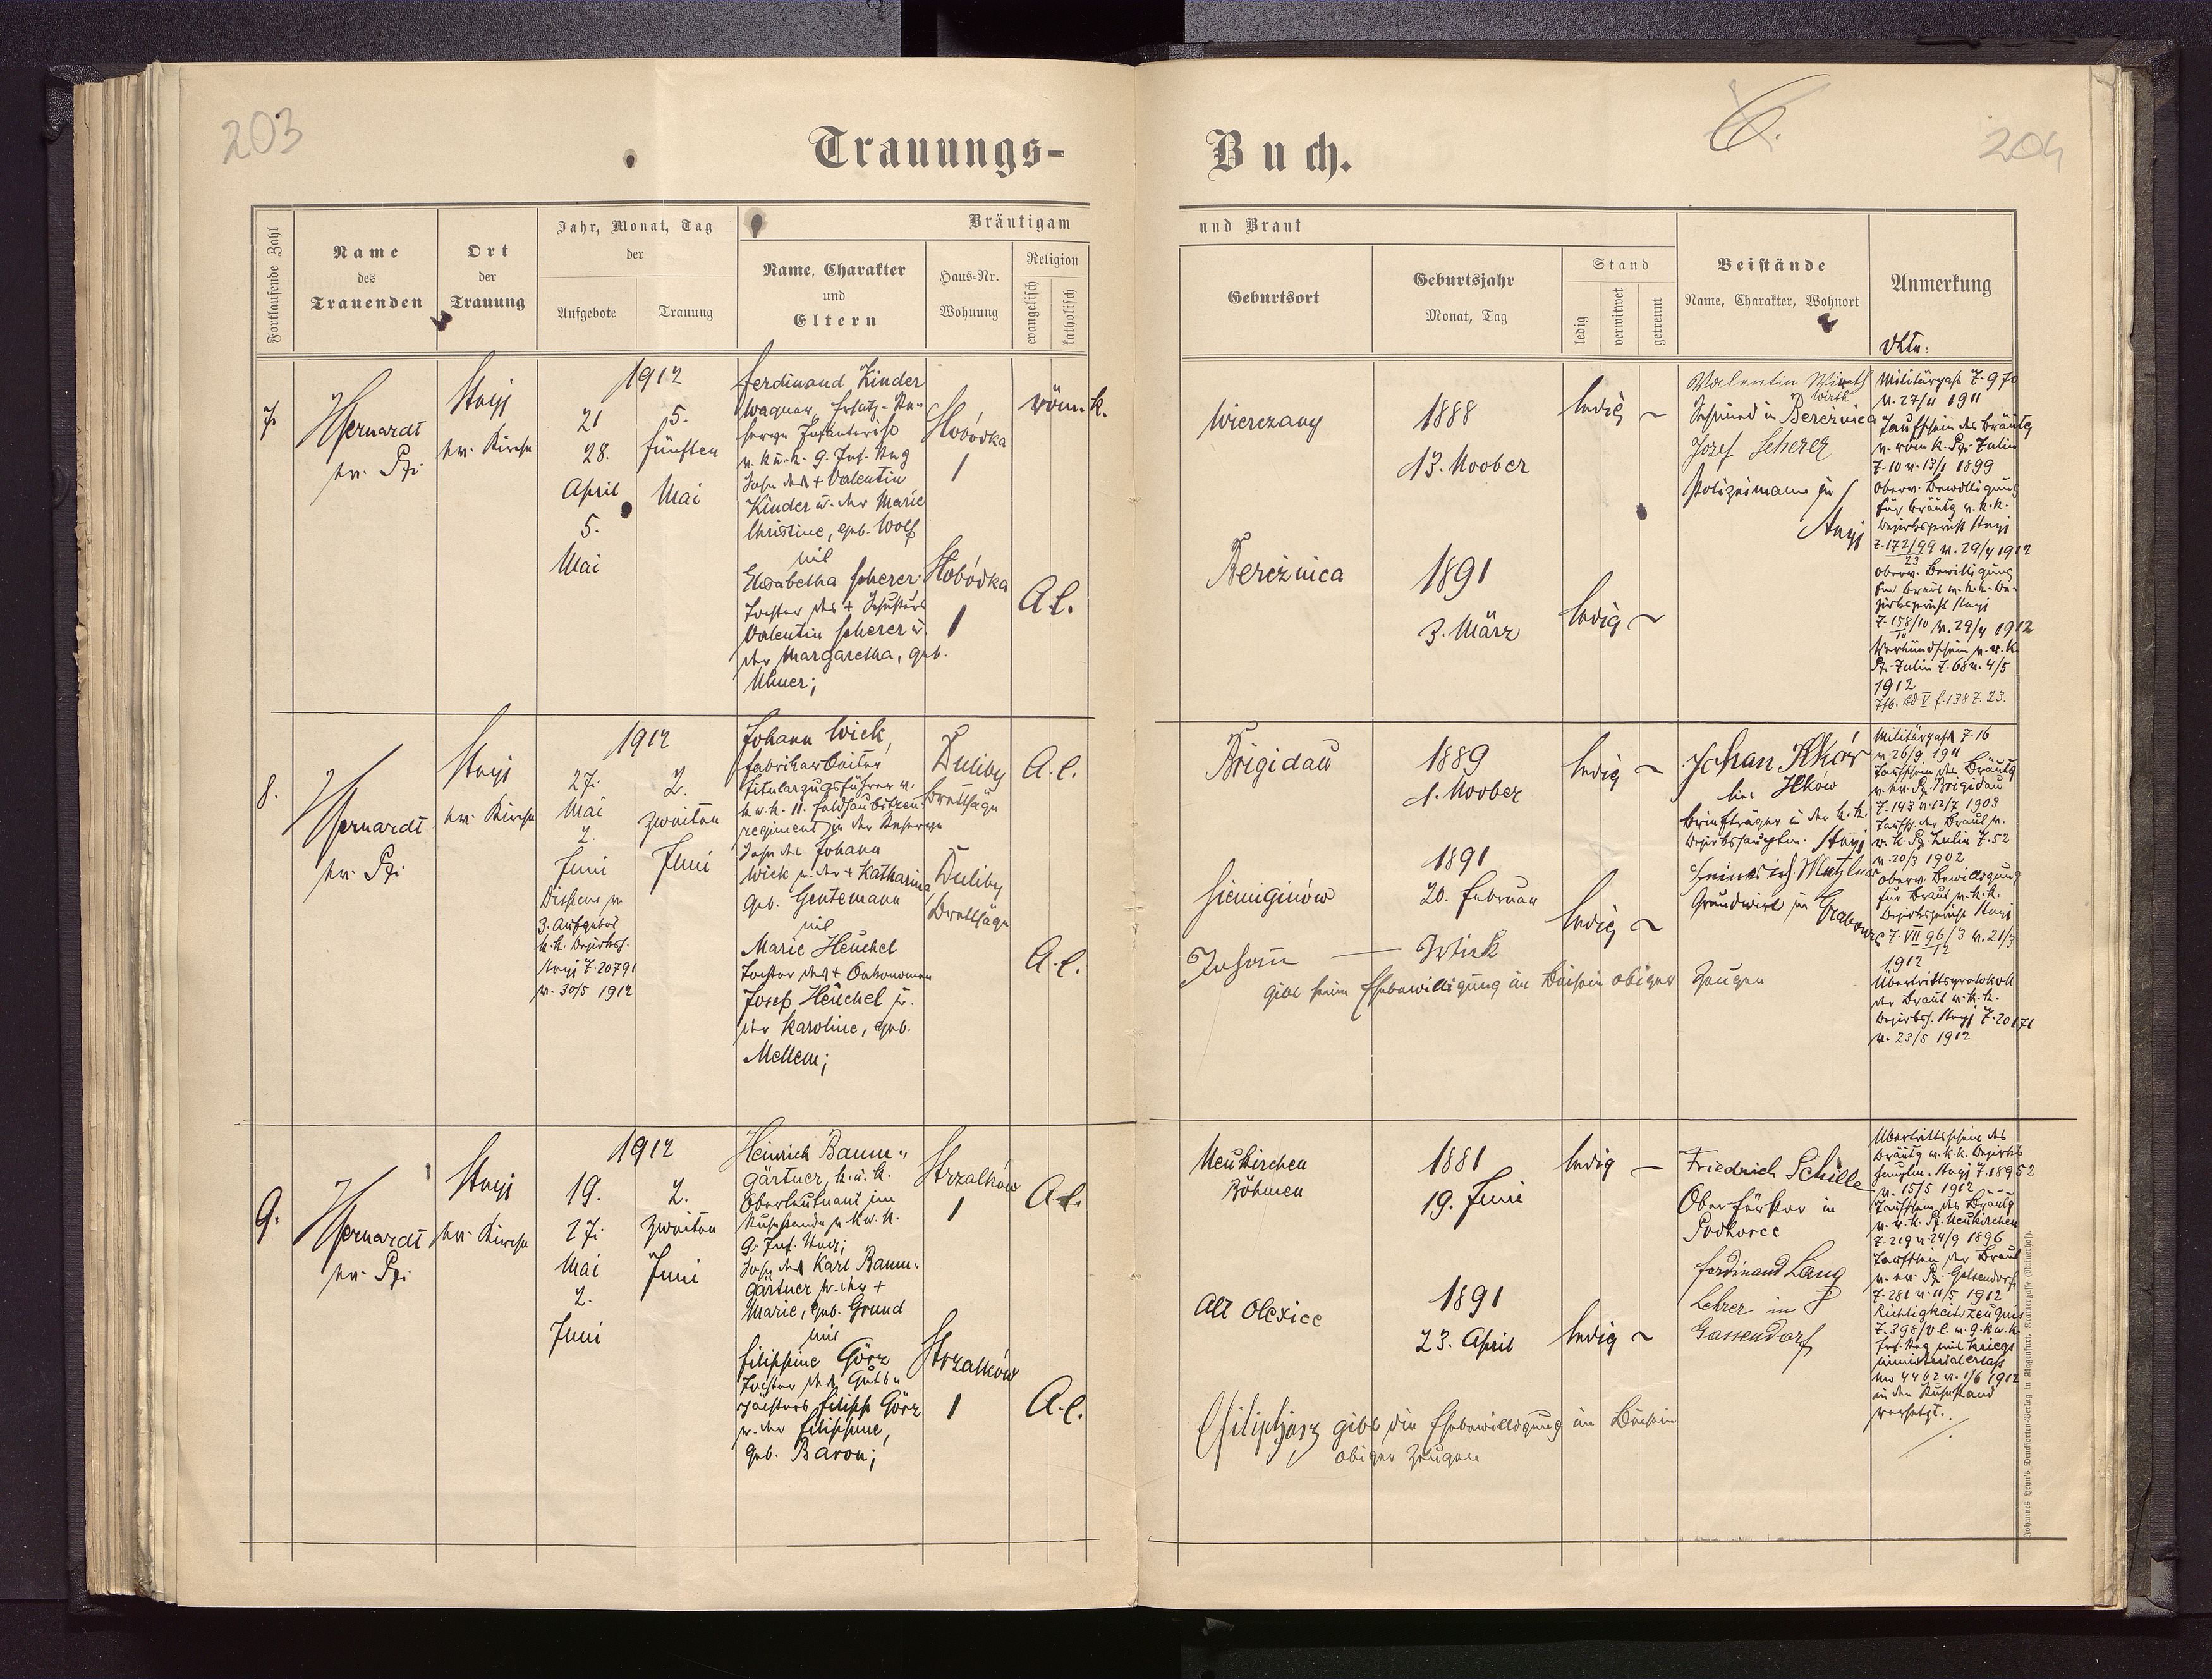 203
Trauungs-
Fortlaufende Zahl
Name
des
Trauenden
Ort
der
Trauung
Jahr, Monat, Tag
der
Aufgebote
Trauung
Bräutigam
Name, Charakter
und
Eltern
Haus-Nr.
Wohnung
Religion
evangelisch
katholisch
7.
ev. Kirche
1912
21
28.
April
5.
Mai
5.
fünften
Mai
Ferdinand Kinder
Wagner, Ersatz-Re-
serve Infanterist
Sohn des + Valentin
Kinder u. der Marie
Christine, geb. Wolf
mit
Elisabetha Scherer
Tochter des + Schusters
Valentin Scherer u.
der Margaretha, geb.
Slobódka
1
Slobódka
1
röm. k.
A.C.
8.
Stryj
ev. Kirche
1912
27.
Mai
2.
Juni
Dispens v.
3. Aufgebot
k.k. Bezirksh.
Stryj Z. 20791
v. 30/5 1912
2.
zweiten
Juni
Johann Wick,
Fabriksarbeiter
Titularzugsführer u.
k.u.k. 11. Feldhaubitzen-
regiment in der Reserve
Sohn des Johann
Wick u. der + Katharina,
geb. Gentemann
mit
Marie Heuchel
Tochter des + Oekonomen
Josef Heuchel u.
der Karoline, geb.
Mellem;
Duliby
Brettsäge
Duliby
Brettsäge
A.C.
A.C.
9.
Stryj
ev. Kirche
1912
19.
27.
Mai
2.
Juni
2.
zweiten
Juni
Heinrich Baum-
gärtner, k.u.k.
Oberleutnant im
Ruhestande
Sohn des Karl Baum-
gärtner u. der +
Marie, geb. Grund
mit
Filippine Görz
Tochter des Guts-
pächters Filipp Görz
u. der Filippine,
geb. Baron;
Strzalków
1
Strzalków
1
A.C.
A.C.
Buch.
6.
204
und Braut
Geburtsort
Geburtsjahr
Monat, Tag
Stand
ledig
verwitwet
getrennt
Beistände
Name, Charakter, Wohnort
Anmerkung
Wierczany
1888
13. Noober
ledig
Bereźnica
1891
3. März
ledig
Valentin Wirth
Wirth
Schmied in Bereźnica
Josef Scherer
Polizeimann in
Stryj
Militärpaß Z. 970
v. 27/11 1911
Taufschein des Bräutg
v. röm. k. Pf. Zulin
Z. 10 v. 13/1 1899
Oberv. Bewilligung
für Bräutg v. k.k.
Bezirksgericht Stryj
Z. 172/99 v. 29/4 1912
23
Oberv. Bewilligung
für Braut v. k.k. Be-
zirksgericht Stryj
Z. 158/10 v. 29/4 1912
10
Pf. Zulin Z. 68 v. 4/5
1912
Brigidau
1889
1. Noober
ledig
Siemiginów
1891
20. Februar
ledig
Johann Wick
gibt seine Ehebewilligung im Beisein obiger Zeugen
Ilków
Briefträger in der k.k.
Bezirkshauptm. Stryj
Grundwirt in
Militärpaß Z. 16
v. 26/9 1911
Taufschein des Bräutg
v. ev. Pf. Brigidau
Z. 143 v. 12/7 1903
Taufsch. der Braut v.
r. k. Pf. Zulin Z. 52
v. 20/3 1902
Oberv. Bewilligung
für Braut v. k.k.
Bezirksgericht Stryj
Z. VII 96/3 v. 21/3
12
1912
Übertrittsprotokoll
der Braut v. k.k.
Bezirksh. Stryj Z. 20171
v. 23/5 1912
Neukirchen
Böhmen
1881
19. Juni
ledig
Alt Olexice
1891
23. April
ledig
Friedrich Schille
Oberförster in
Podhorce
Ferdinand Lang
Lehrer in
Gassendorf
gibt die Ehebewilligung im Beisein
obiger Zeugen
Übertrittsschein des
Bräutg v. k.k. Bezirks
hauptm. Stryj Z. 18952
v. 15/5 1912
Taufschein des Bräutg
v. r. k. Pf. Neukirchen
Z. 219 v. 24/9 1896
Taufschein der Braut
v. ev. Pf. Gelsendorf
Z. 281 v. 11/5 1912
Richtigkeitszeugnis
Inf. Reg. mit Kriegs
ministerialerlass
No 4462 v. 1/6 1912
in den Ruhestand
versetzt.
Johannes Heyn's Drucksorten-Verlag in Klagenfurt, Kramergasse (Rainerhof).